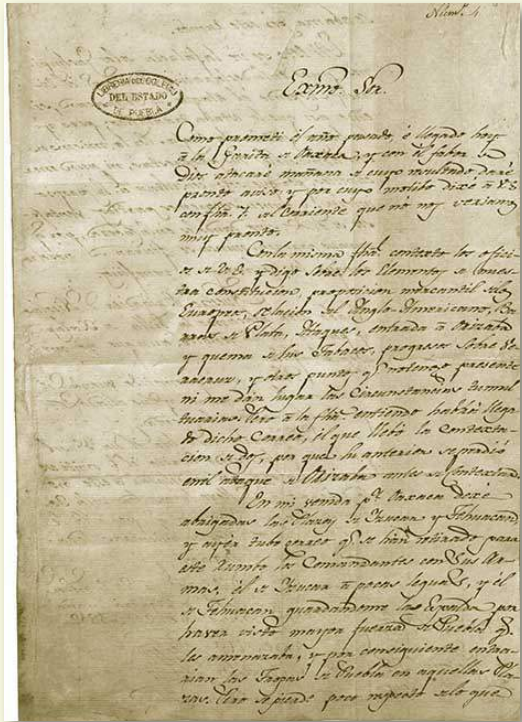 Núm. 4
LIBRERIA DEL COLEGIO
DEL ESTADO
DE PUEBLA
Exmô. Sor.
Como prometí el año pasado, é llegado hoy
a la Garita de Oaxaca, y con el fabor de
Dios atacaré mañana de cuyo resultado daré
pronto aviso, y por cuyo motibo dixe a V.E.
con fha. 7. del Corriente que no nos veriamos
muy pronto.
Con la misma fha. contexto los ofici-
os de V.E. y digo sobre los Elementos de nues-
tra Constitucion, proposicion mercantil del
Europeo, relacion del Anglo Americano, Ba-
rras de Plata, Ataques, entrada a Orizaba
y quema de sus Tabacos, progresos sobre
y otros puntos qe. no tengo presente
ni me dan lugar las Circunstancias tumul
tuarias. Pero a la fha. entiendo habrá llega-
do dicho Correo, el que llebó la Contexta-
cion de dos, por que la anterior se perdió
en el ataque de Orizaba antes de Contextada
En mi venida pa. Oaxaca dexé
abrigadas las Plazas de Yzucar y Tehuacan
y ayer tube correo qe. se han retirado para
este rumbo los Comandantes con sus Ar-
mas, el de Yzucar a pocas leguas, y el
de Tehuacan guardandome la Espalda por
haver visto mayor fuerza de Puebla qe.
les amenazaba, y por consiguiente entra-
rian las Tropas de Puebla en aquellas Pla-
zas. Pero se pierde poco respecto de lo que